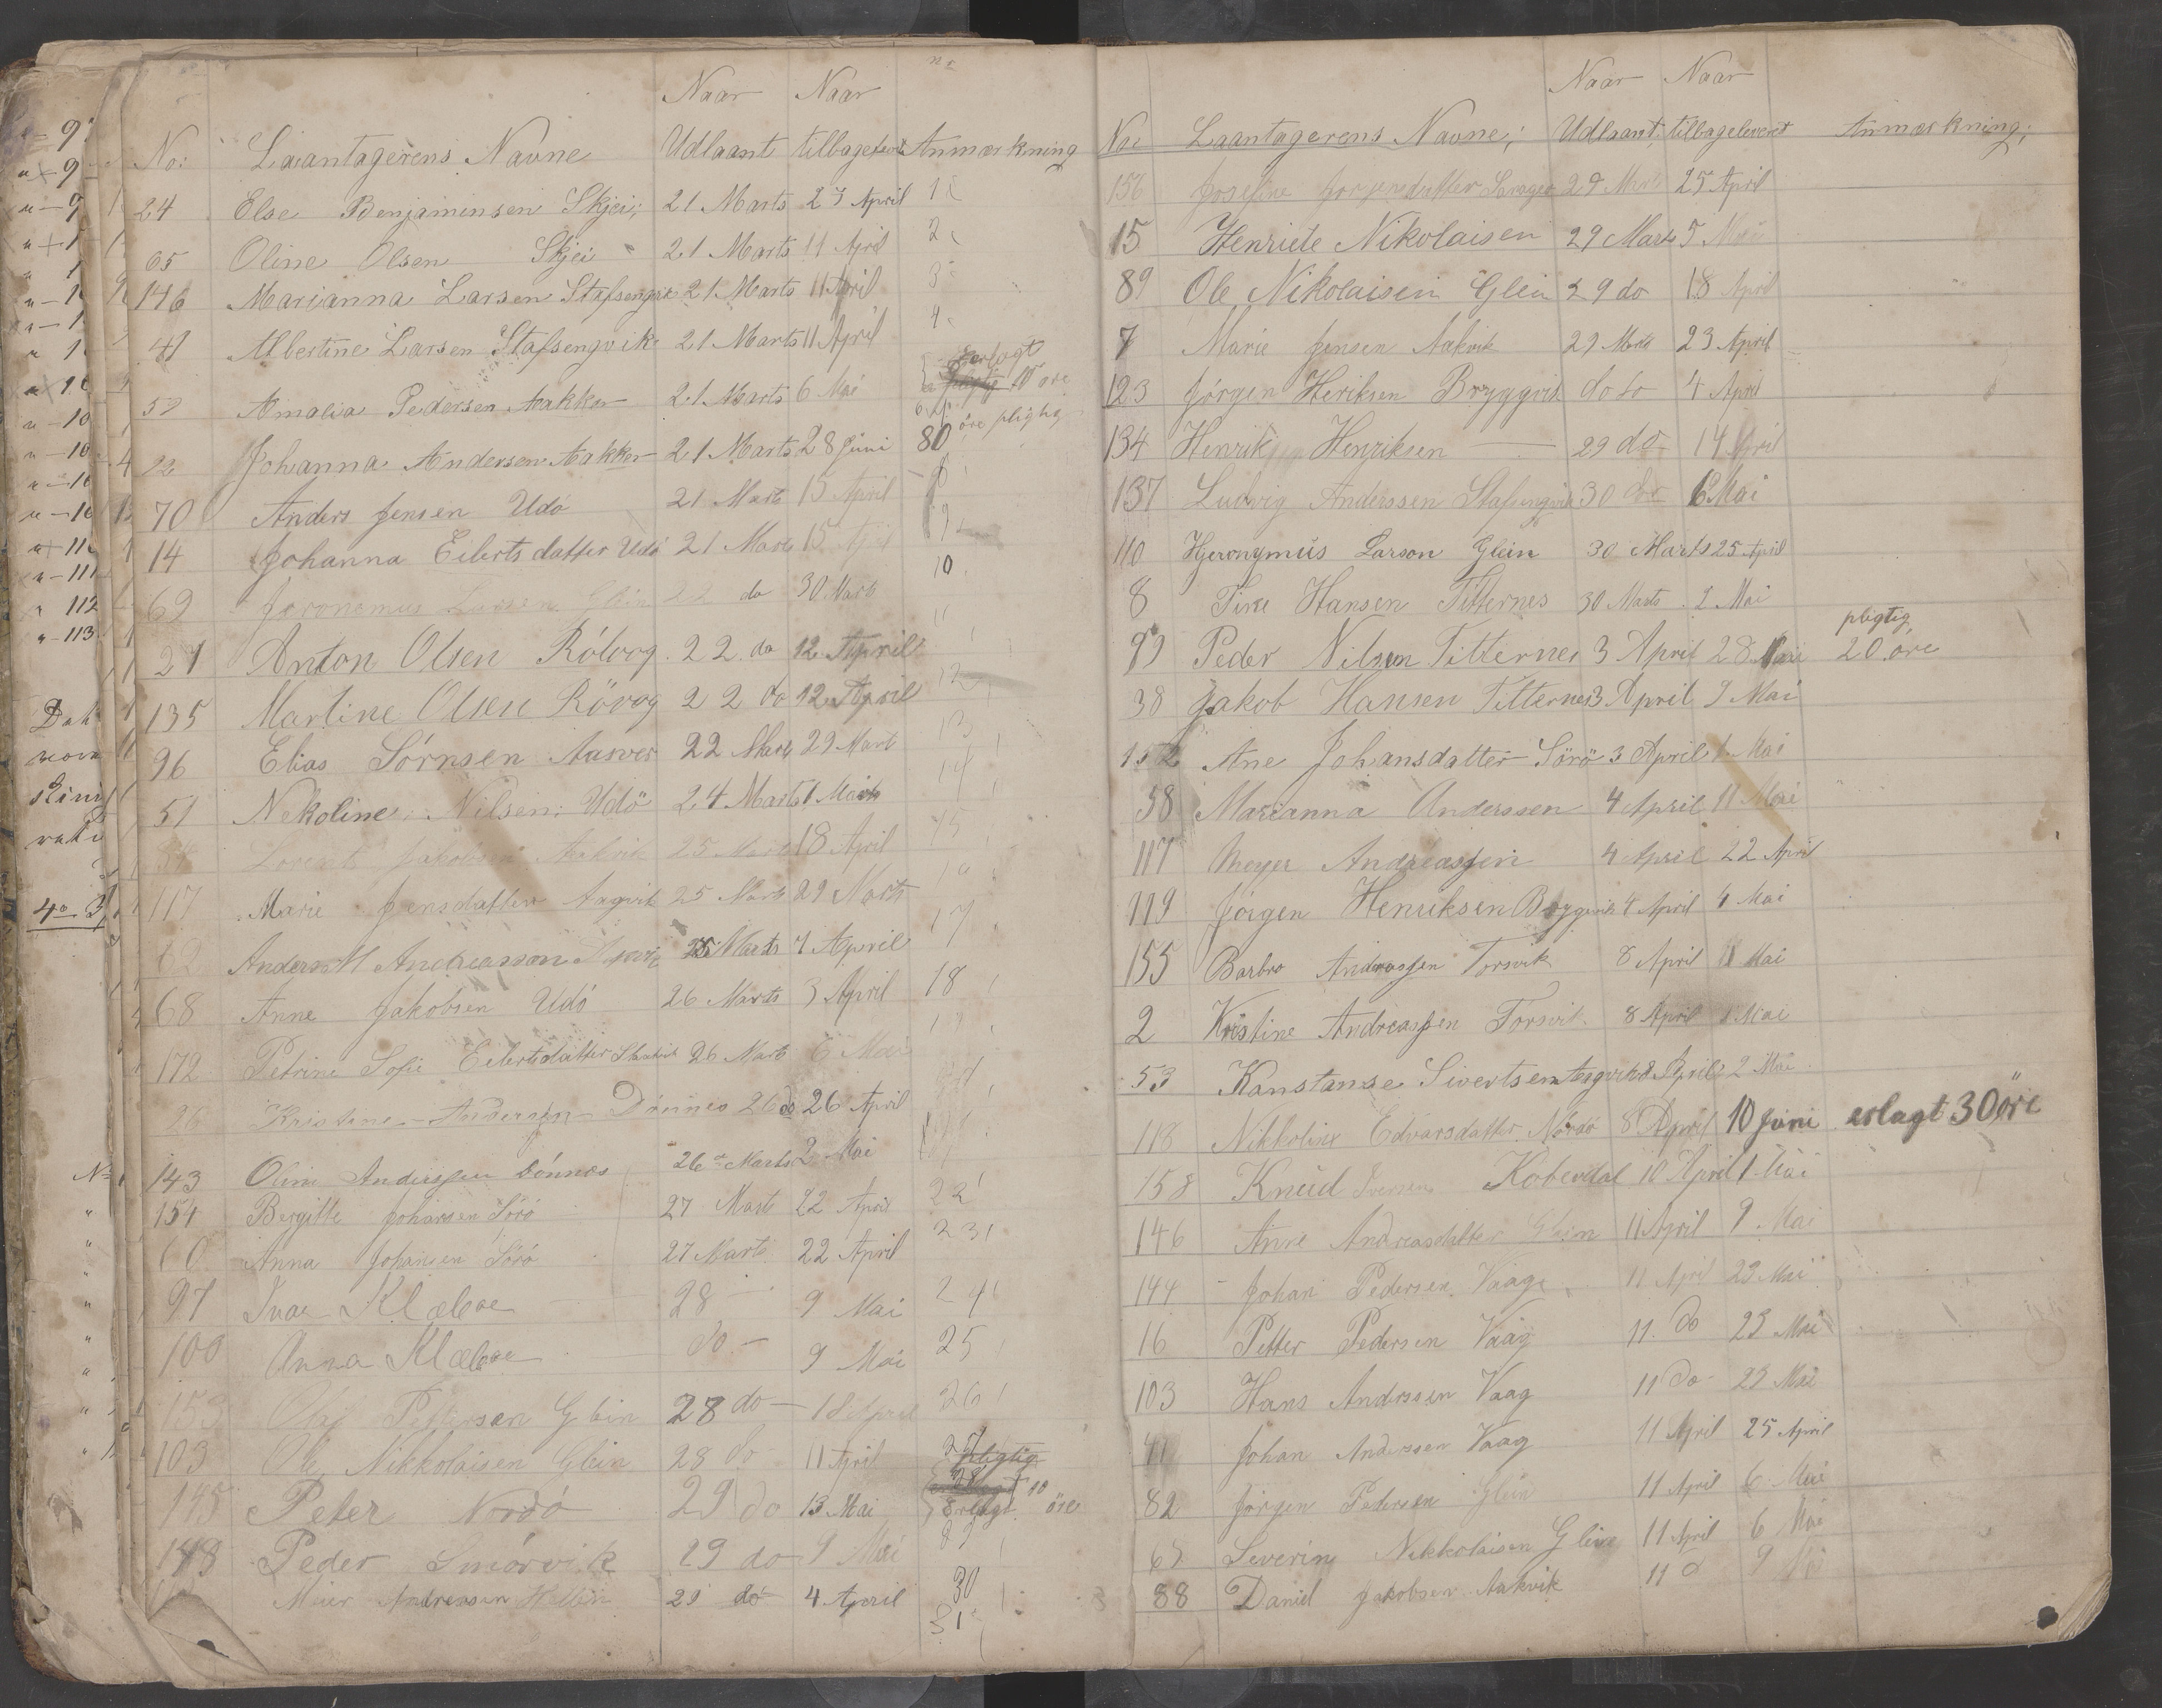 Naar Naar
No: Laantagerens Navne Udlaant tilbagelev Anmærkning
24 Else Benjaminsen Skjei; 21 Marts 23 April 1
65 Oline Olsen Skjei 21 Marts 11 April 2
146 Marianna Larsen 21 Marts 11 April 3
41 Albertine Larsen Stafsengvik 21 Marts 11 April 4
Amalia Pedersen Aakker 21 Marts 6 Mai erlagt 10 øre
22 Johanna Andersen Aakker 21 Marts 28 Juni 80 øre pligtig
70 Anders Jensen Udö 21 Marts 15 April
14 Johanna Eilertsdatter Udö 21 Marts 15 April
69 Jeronemus Larsen Glein 22 do 30 Marts 10
21 Anton Olsen 22 do 12 April 11
135 Martine Olsen Rövog 22 do 12 April 12
96 Elias Sörnsen Aasver 22 Marts 29 Mart 13
51 Nekoline Nilsen Udö 24 Marts 1 14
Lorents Jakobsen Aakvik 25 Marts 18 April 15
117 Marie Jensdatter Aagvik 25 Marts 29 Marts
62 Anders M Andreassen 25 Marts 4 April 17
68 Anne Jakobsen Udö 26 Marts 3 April 18
172 Petrine Sofie Eilertsdatter 26 Marts 6 Mai
26 Kristine Andersen Dönnes 26 do 26 April
143 Oline Anderssen Dönnes 26 Marts 2 Mai
154 Bergitte Johansen Sörö 27 Marts 22 April 22
60 Anna Johansen Sörö 27 Marts 22 April 23
97 Ivar Klæboe 28 9 Mai 24
100 Anna Klæboe do 9 Mai 25
153 Olaf Pettersen Glein 28 do 18 April 26
103 Ole Nikkolaisen Glein 28 do 11 April pligtig
145 Peter Nordö 29 do 13 Mai Erlagt 10 öre
148 Peder Smörvik 29 do 9 Mai
Meier Andreassen 29 do 4 April 30
31
Naar Naar
No: Laantagerens Navne; Udlaant; tilbageleveret Anmærkning;
156 Josefine Jorgensdatter 29 Marts 25 April
15 Henriete Nikolaisen 29 Marts 5 Mai
89 Ole Nikolaisen Glein 29 do 18 April
7 Marie Jensen Aakvik 29 Marts 23 April
123 Jörgen Heriksen Bryggvik do do 4 April
134 Henrik Henriksen 29 do 14 April
137 Ludvig Anderssen Stafsengvik 30 do 6 Mai
110 Hjeronymus Larson Glein 30 Marts 25 April
8 Tine Hansen Titternes 30 Marts 2 Mai
pligtig
99 Peder Nilsen Titternes 3 April 28 Mai 20 øre
38 Jakob Hansen Titternes 3 April 9 Mai
152 Ane Johansdatter Sörö 3 April 1 Mai
58 Marianna Anderssen 4 April 11 Mai
117 Meyer Andreassen 4 April 22 April
119 Jörgen Henriksen Bryggvik 4 April 4 Mai
155 Barbro Andreassen Torsvik 8 April Mai
2 Kristine Andreassen Torsvik 8 April 1 Mai
53 Kanstanse Sivertsen Aagvik 8 April 2 Mai
118 Nikkoline Edvarsdatter Nordö 8 April 10 Juni erlagt 30 öre
158 Kneid Iversen Kobberdal 10 April 1 Mai
146 Anne Andreasdatter Glein 11 April 9 Mai
144 Johan Pedersen Vaage 11 April 23 Mai
16 Petter Pedersen Vaag 11 do 23 Mai
103 Hans Anderssen Vaag 11 do 23 Mai
41 Johan Anderssen Vaag 11 April 25 April
82 Jörgen Pedersen Glein 11 April 6 Mai
Severin Nikkolaisen Glein 11 April 6 Mai
88 Daniel Jakobsen Aakvik 11 d 9 Mai